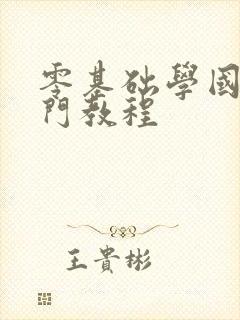 零基础學國
門教程
王貴彬